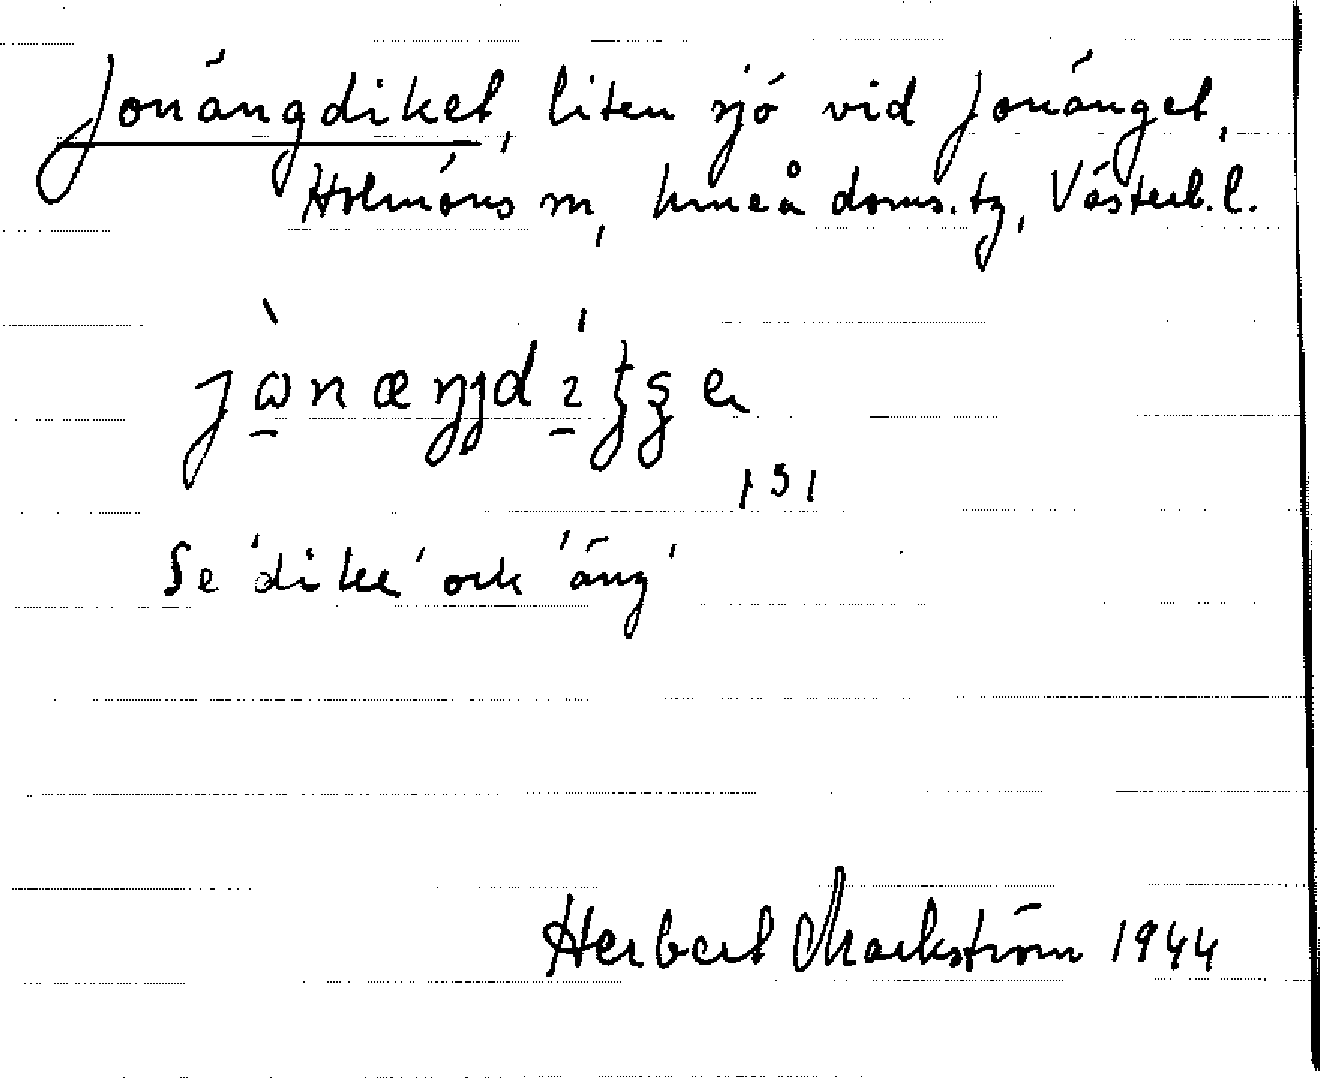 Jonängdiket, liten sjö vid Jonänget,
Holmöns sn, Umeå doms. tg, Västerb. l.
131
Se 'dike' och 'äng'
Herbert Markström 1944